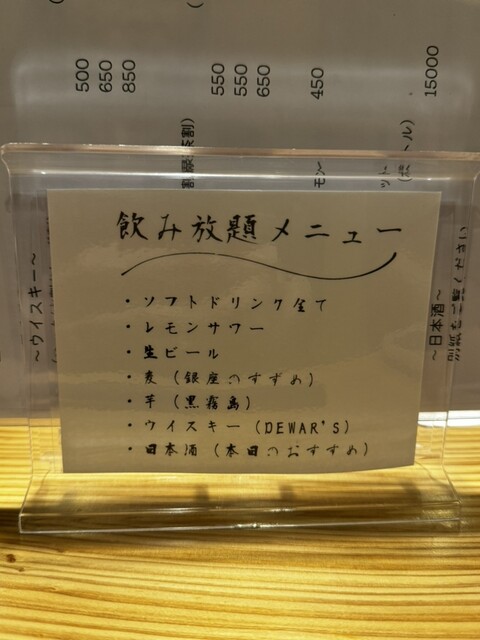 飲み放題メニュー
・ソフトドリンク全て
・レモンサワー
・生ビール
・麦（銀座のすずめ）
・芋（黒霧島）
・ウイスキー（DEWAR'S）
・日本酒（本日のおすすめ）
500
650
850
550
550
650
450
15000
～ウイスキー～
～日本酒～
別紙をご覧ください